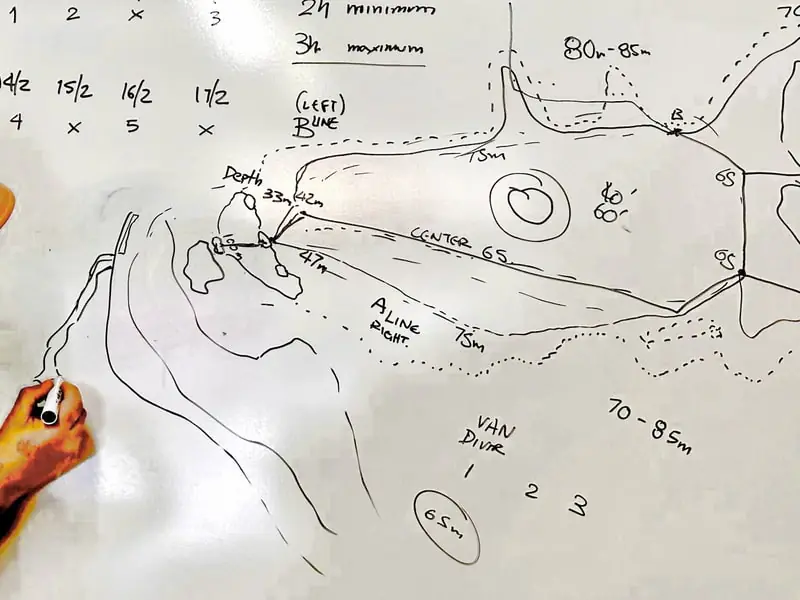 1 2 x 3
2h minimum
3h maximum
14/2 15/2 16/2 17/2
4 x 5 x
(LEFT)
B LINE
80m-85m
70
B
75m
Depth
33m 42m
65
40'
60'
CENTER 65
65
47m
A LINE
RIGHT
75m
70-85m
VAN
DIVER
1 2 3
65m